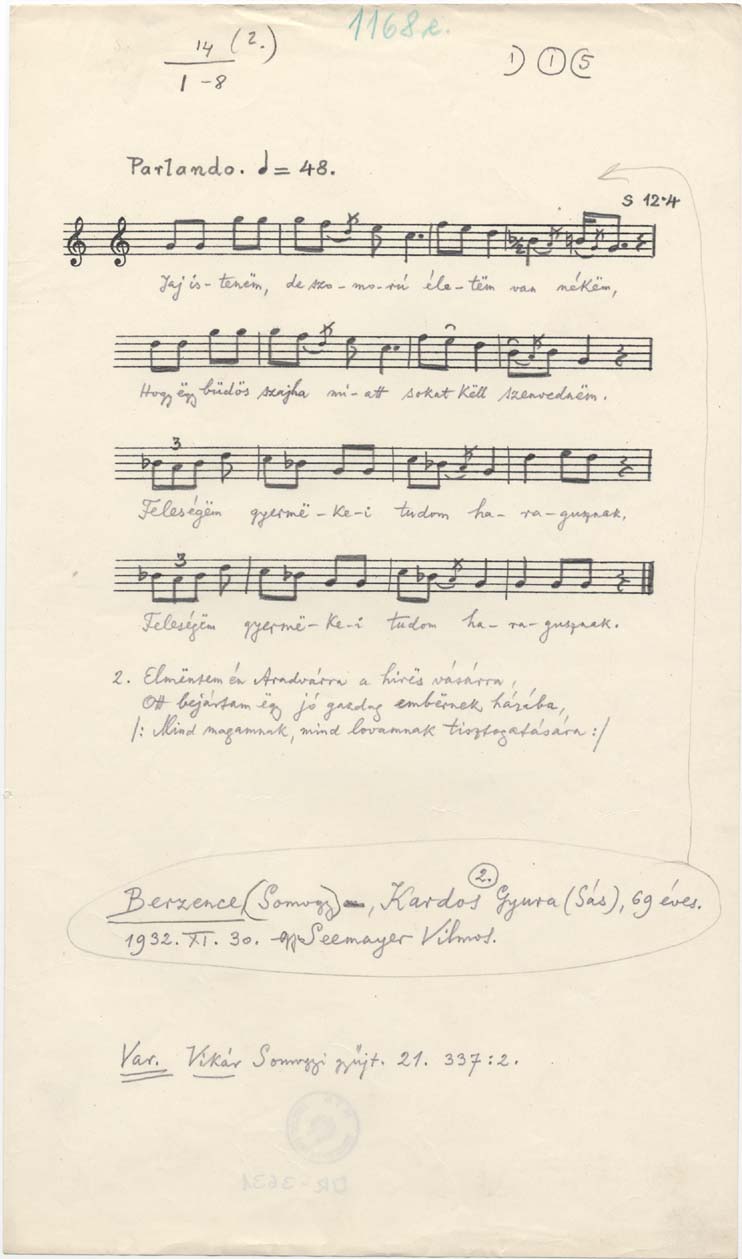 1168e.
14 (2.)
1-8
1) ① ⑤
Parlando. = 48.
S 12·4
Jaj is-teném, de szo-mo-rú éle-tëm van nékëm,
Hogy ëgy büdös szajha mi-att sokat këll szenvednëm.
3
Feleségëm gyermë-ke-i tudom ha-ra-gusznak,
3
Feleségëm gyermë-ke-i tudom ha-ra-gusznak.
2. Elmëntem én Aradvárra a hírës vásárra,
Ott bejártam ëgy jó gazdag embërnek házába,
/: Mind magamnak, mind lovamnak tisztogatására :/
2.
Berzence (Somogy), Kardos Gyura (Sás), 69 éves.
1932. XI. 30. Seemayer Vilmos.
Var. Vikár Somogyi gyűjt. 21. 337:2.
DR-3631